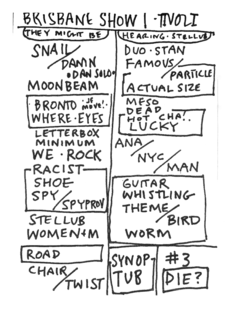 BRISBANE SHOW 1 · TIVOLI
THEY MIGHT BE
SNAIL/
DAMN
DAN SOLO
MOONBEAM
BRONTO
WHERE · EYES
LETTERBOX
MINIMUM
WE · ROCK
RACIST
SHOE
SPY/
SPYPROV
STELLUB
WOMEN+M
ROAD
CHAIR/
TWIST
HEARING · STELLUB
DUO · STAN
FAMOUS/
PARTICLE
ACTUAL SIZE
MESO
DEAD
HOT CHA!.
LUCKY
ANA/
NYC/
MAN
GUITAR
WHISTLING
THEME/
BIRD
WORM
SYNOP
TUB
#3
DIE?